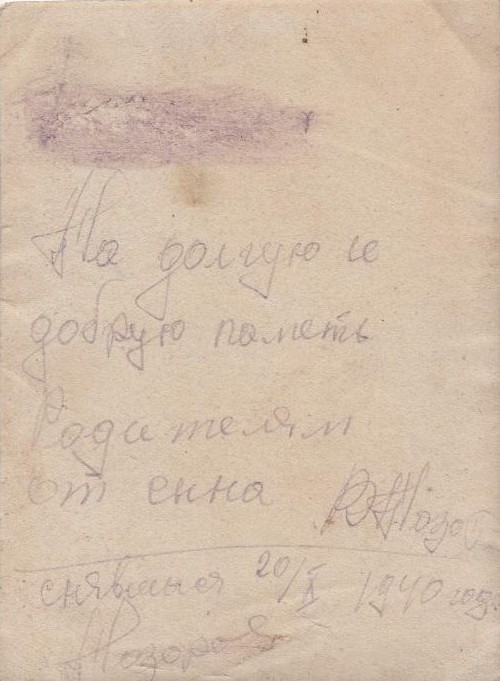 На долгую и
добрую паметь
Родителям
от сина
снявшися 20/X 1940 год